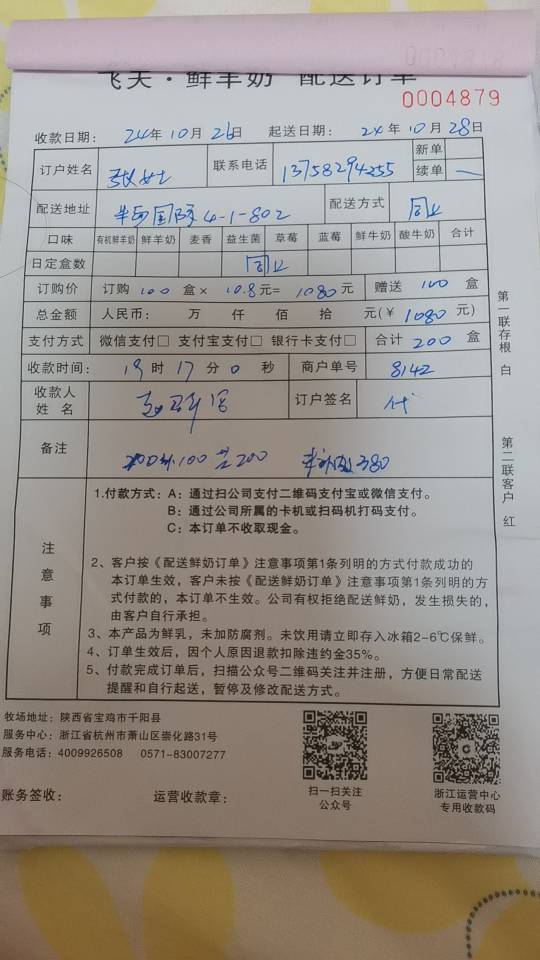 飞天·鲜羊奶 配送订单
0004879
收款日期： 24年10月26日 起送日期： 24年10月28日
订户姓名 联系电话 13758294255 新单
续单 一
配送地址 国际4-1-802 配送方式 同上
口味 有机鲜羊奶 鲜羊奶 麦香 益生菌 草莓 蓝莓 鲜牛奶 酸牛奶 合计
日定盒数 同上
订购价 订购 100 盒× 10.8元= 1080元 赠送 100 盒
总金额 人民币： 万 仟 佰 拾 元(￥1080元)
支付方式 微信支付□ 支付宝支付□ 银行卡支付□ 合计 200 盒
收款时间： 时17分0秒 商户单号 8142
收款人姓名 订户签名 代
备注 100 200 380
注意事项
1.付款方式：A：通过扫公司支付二维码支付宝或微信支付。
B：通过公司所属的卡机或扫码机打码支付。
C：本订单不收取现金。
2、客户按《配送鲜奶订单》注意事项第1条列明的方式付款成功的
本订单生效，客户未按《配送鲜奶订单》注意事项第1条列明的方
式付款的，本订单不生效。公司有权拒绝配送鲜奶，发生损失的，
由客户自行承担。
3、本产品为鲜乳，未加防腐剂。未饮用请立即存入冰箱2-6℃保鲜。
4、订单生效后，因个人原因退款扣除违约金35%。
5、付款完成订单后，扫描公众号二维码关注并注册，方便日常配送
提醒和自行起送，暂停及修改配送方式。
第一联存根 白
第二联客户 红
牧场地址：陕西省宝鸡市千阳县
服务中心：浙江省杭州市萧山区崇化路31号
服务电话：4009926508 0571-83007277
账务签收： 运营收款章：
扫一扫关注
公众号
浙江运营中心
专用收款码